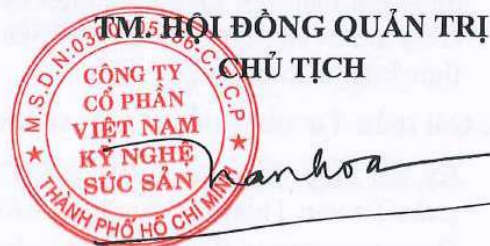 TM. HỘI ĐỒNG QUẢN TRỊ
CHỦ TỊCH
CÔNG TY
CỔ PHẦN
VIỆT NAM
KỸ NGHỆ
SÚC SẢN
THÀNH PHỐ HỒ CHÍ MINH